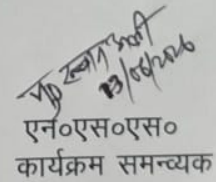 13/06/2026
एन०एस०एस०
कार्यक्रम समन्व्यक